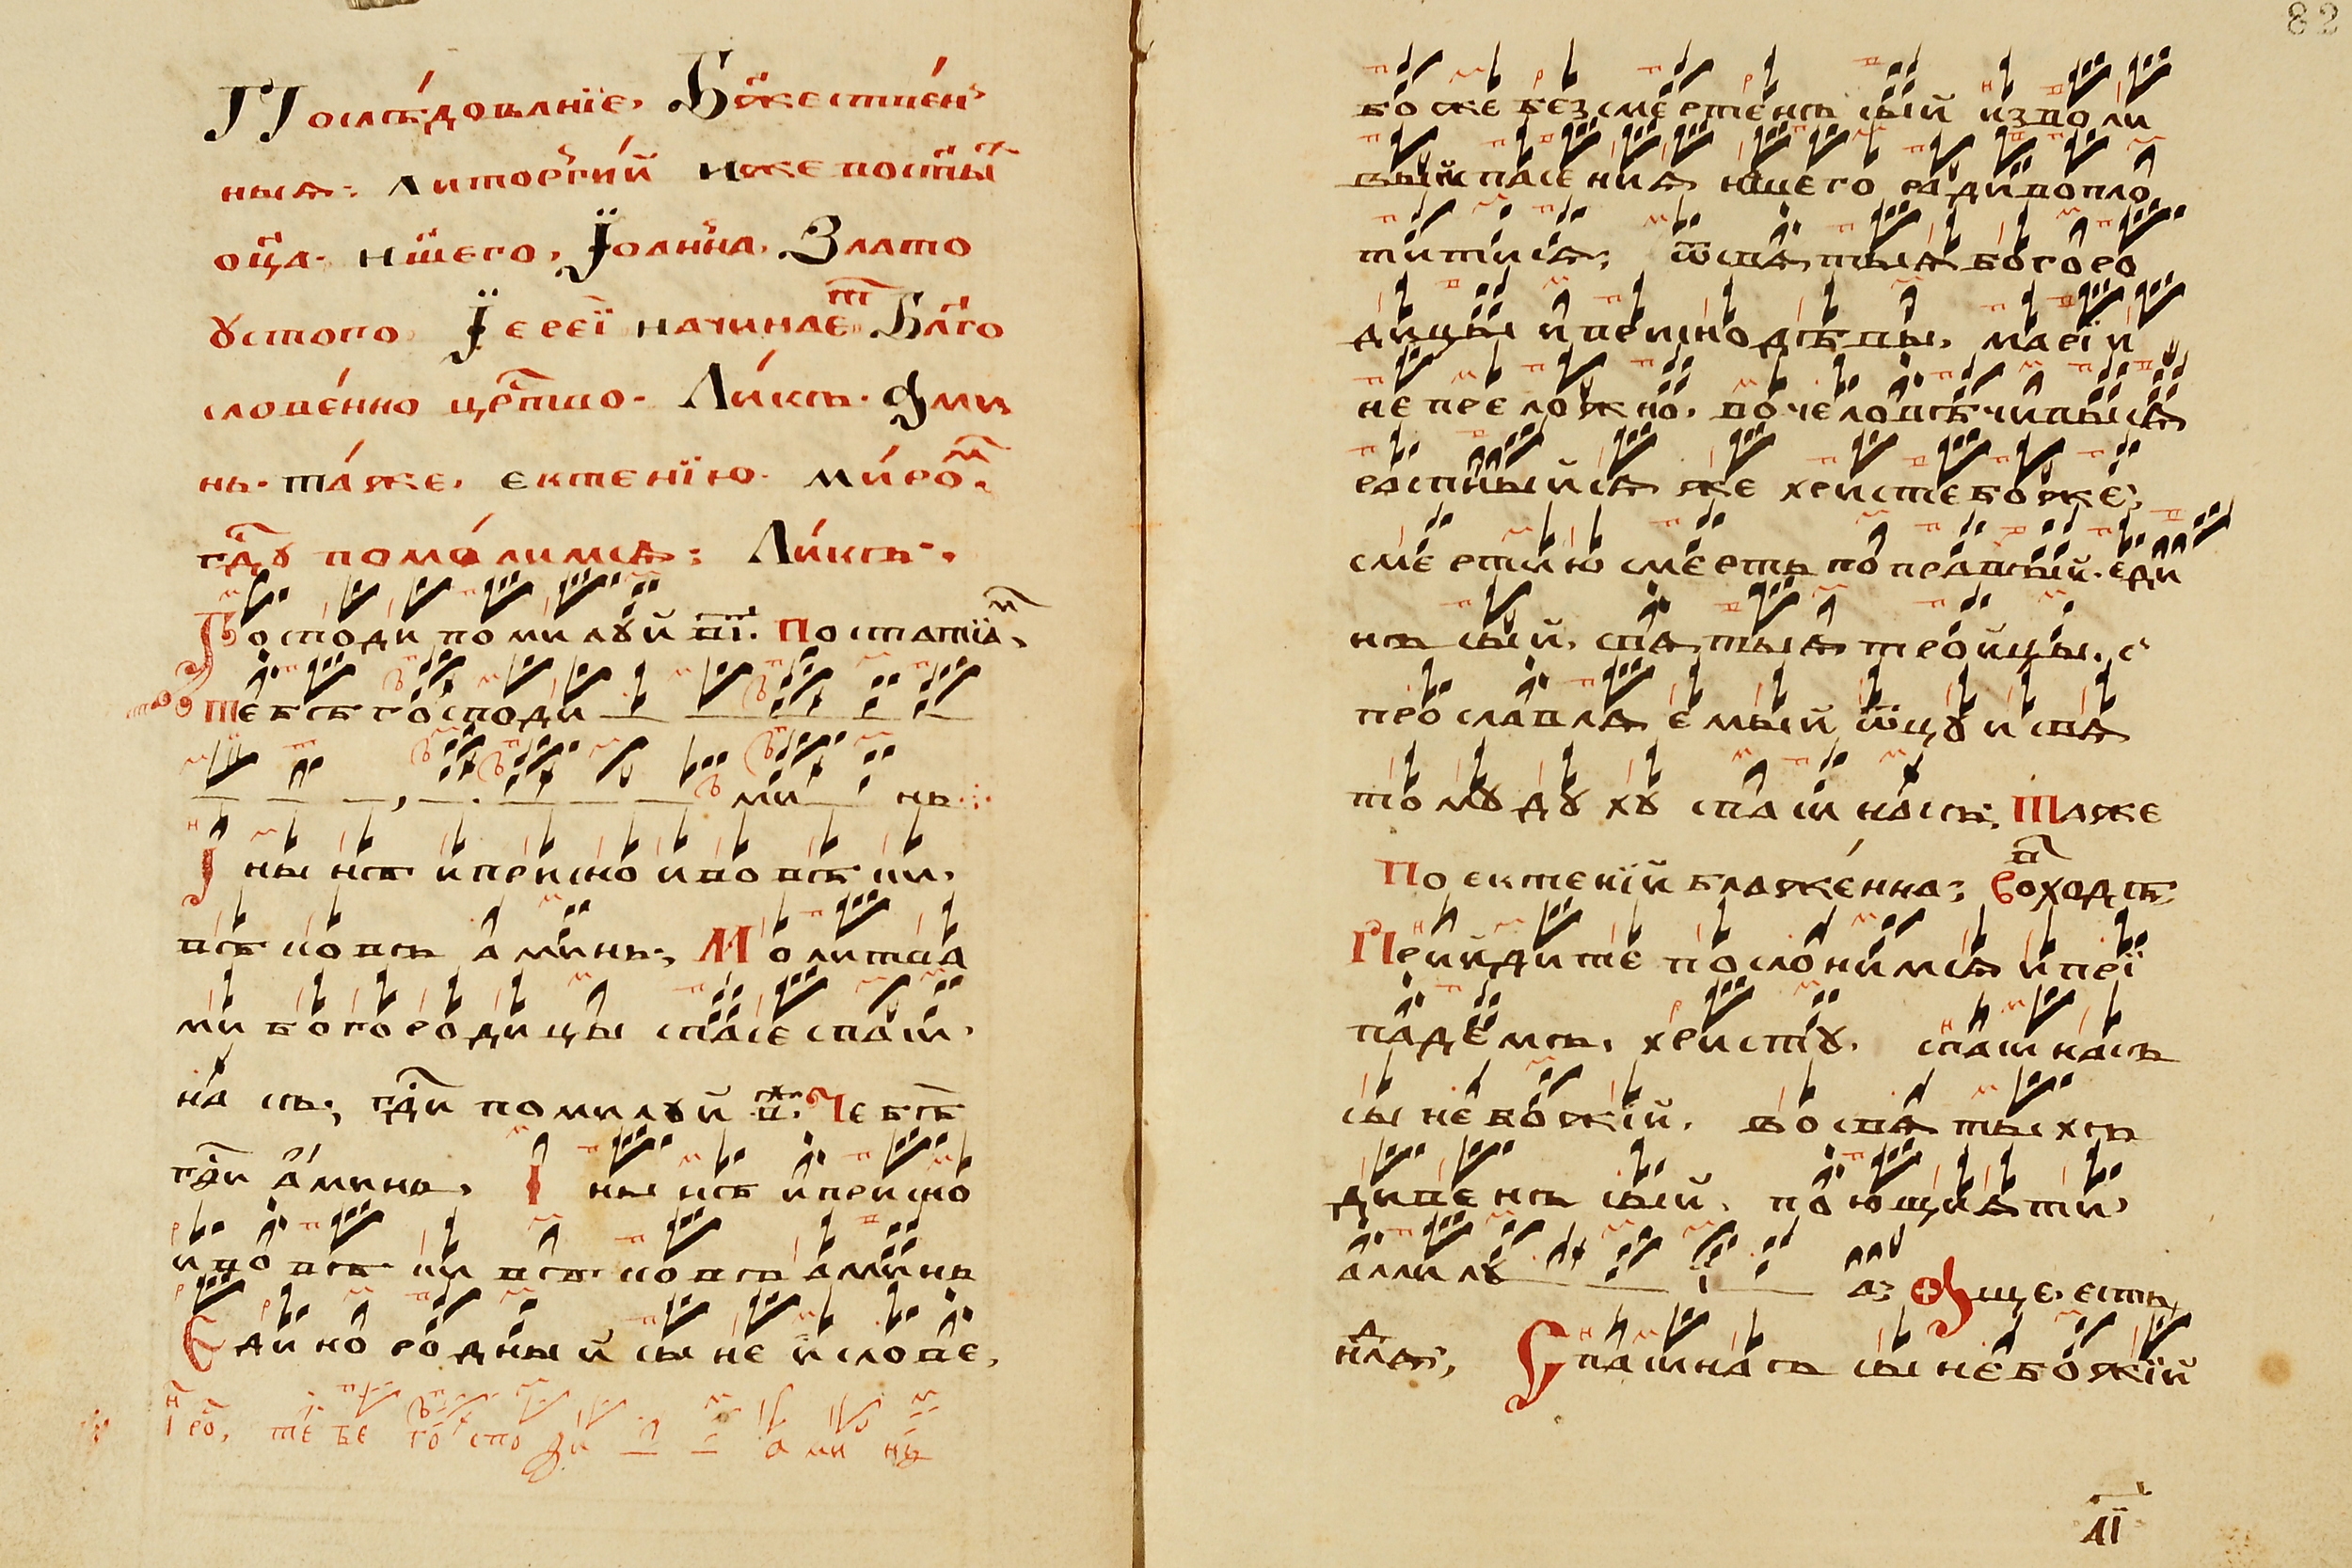 Послѣдованїе, Бжⷭ҇ествен
ныѧ: литоргїи иже во ст҃ы́х
оц҃а нш҃его, Їѡанна, Злато
ꙋстого Їере́й начинае́т Бл҃го
слове́нно цр҃тво. Ли́къ. Ами
нь. та́же, ектенїю миро́м.
гд҃ꙋ помо́лимсѧ: Ли́къ.,
Господи помилꙋй в҃ї. По статїѧм,
тебѣ господи
ми нь.
И нынѣ и присно и во вѣ ки,
вѣковъ аминь; Молитва
ми богородицы спасе спаси.
на съ; гд҃и помилꙋй в҃. Тебѣ
гд҃и а́минь, И ны нѣ и присно
и во вѣ ки вѣ ковъ аминь
Единородный сыне и слове,
І ро, тебе господи а ми нь
82
боже безсмертенъ сый изволи
вый спасениѧ нш҃его ради вопло
титисѧ; ѿ свѧтыѧ богоро
дицы и приснодѣвы. марїи
непреложно. вочеловѣчивыйсѧ
распныйсѧ же христе боже;
смертию смерть поправый. еди
нъ сый. свѧтыѧ тройцы. с
прославлѧемый ѿцꙋ и свѧ
томꙋ дꙋхꙋ спаси насъ; Таже
По ектенїи блаже́нна; Воходъ
Прийдите поклонимсѧ и прї
падемъ. христꙋ. спаси насъ
сыне божїй. во свѧтыхъ
дивенъ сый. поющиѧ ти
аллилꙋ ѧ; Аще. есть
нлѧ; Спаси насъ сыне божїй
аї